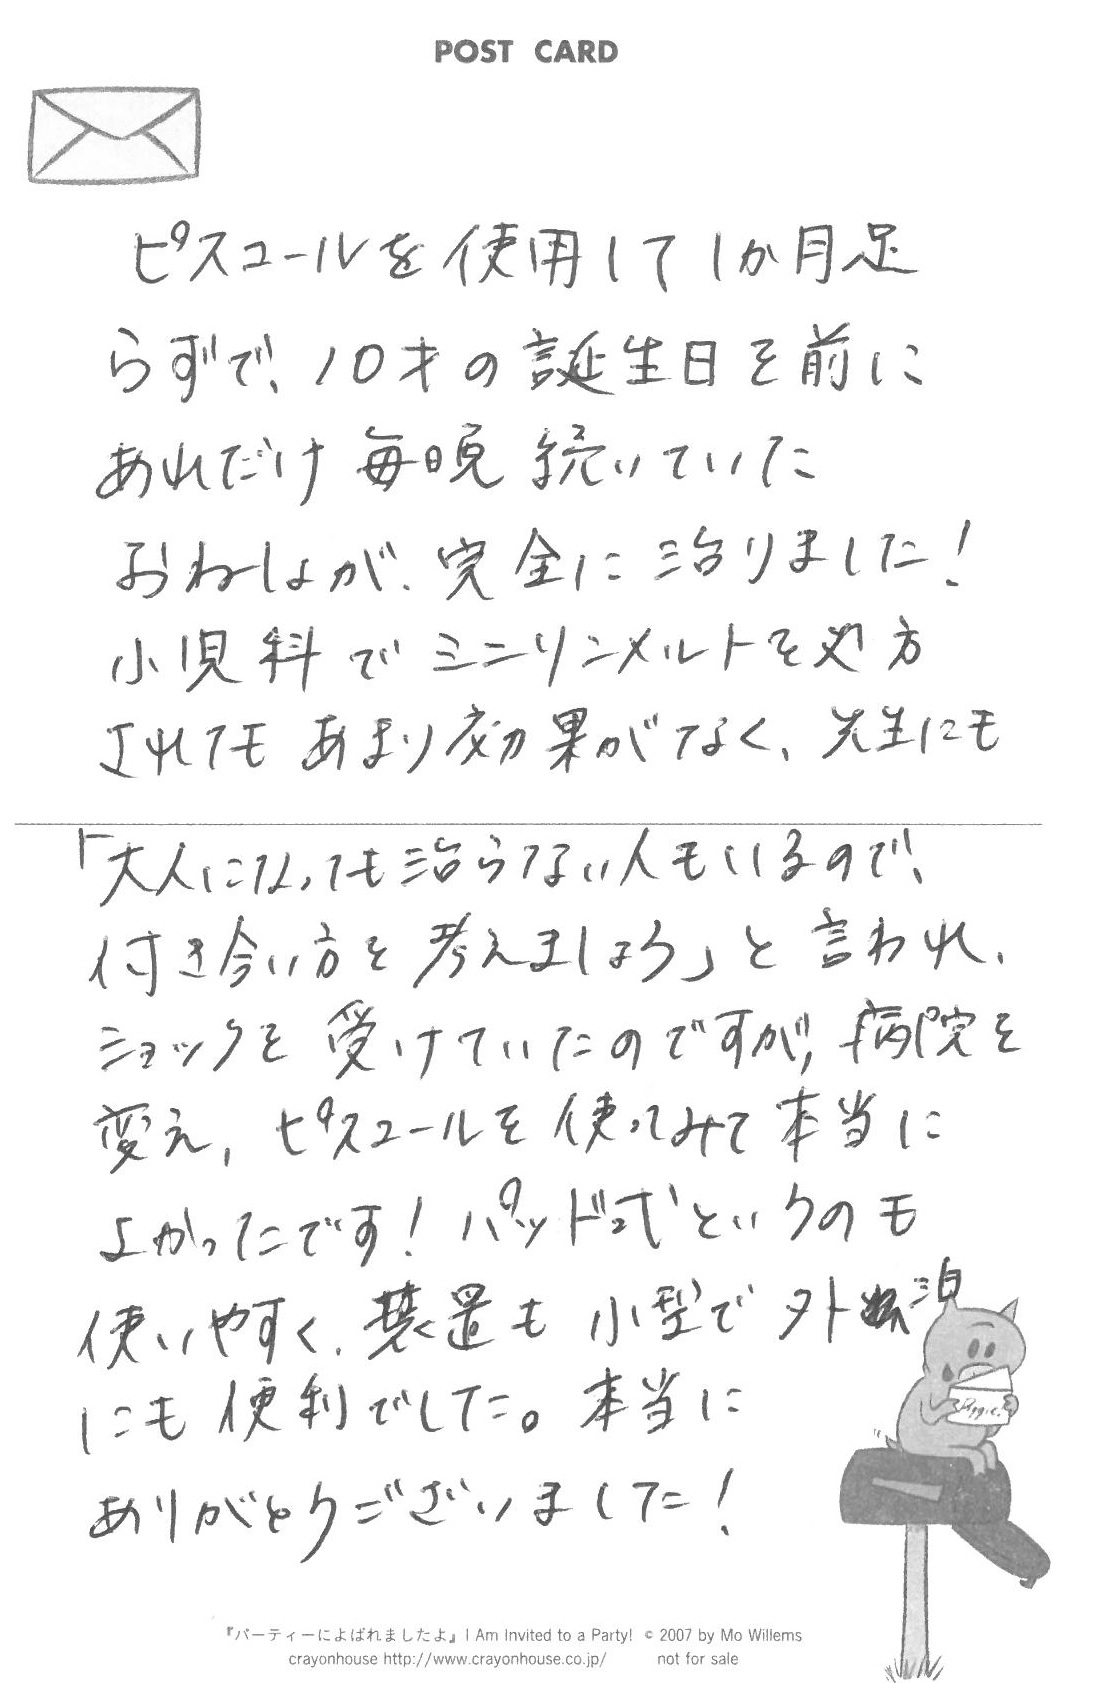 POST CARD
ピスコールを使用して1か月足
らずで、10才の誕生日を前に
あれだけ毎晩続いていた
おねしょが、完全に治りました!
小児科でミニリンメルトを処方
されてもあまり効果がなく、先生にも
「大人になっても治らない人もいるので、
付き合い方を考えましょう」と言われ、
ショックを受けていたのですが、病院を
変え、ピスコールを使ってみて本当に
よかったです!パッド式というのも
使いやすく、装置も小型で外泊
にも便利でした。本当に
ありがとうございました!
Piggie.
『パーティーによばれましたよ』I Am Invited to a Party! © 2007 by Mo Willems
crayonhouse http://www.crayonhouse.co.jp/ not for sale